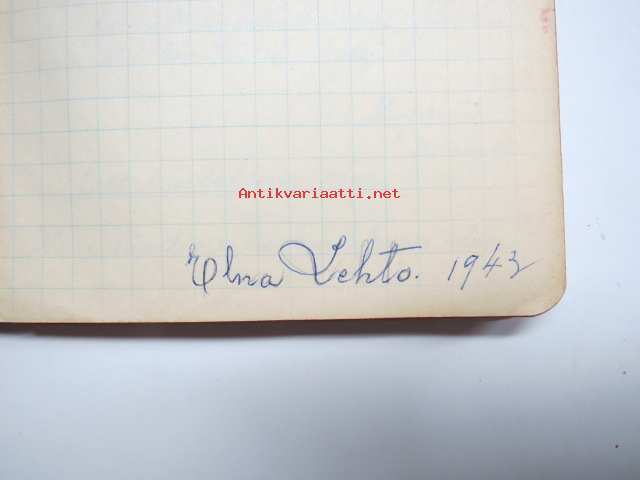 Antikvariaatti.net
Elna Lehto. 1943